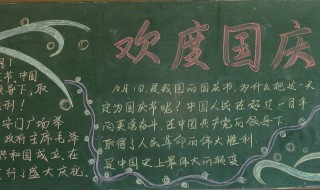 欢度国庆
月1
节,中国
导下,取
胜利!
安门广场举
政府主席毛泽
共和国成立,在
行了盛大庆礼。
10月1日,是我国的国庆节,为什么把这一天
定为国庆节呢?中国人民在经过一百多年
的英勇奋斗,在中国共产党的领导下,
取得了人民革命的伟大胜利
是中国史上最伟大的转变